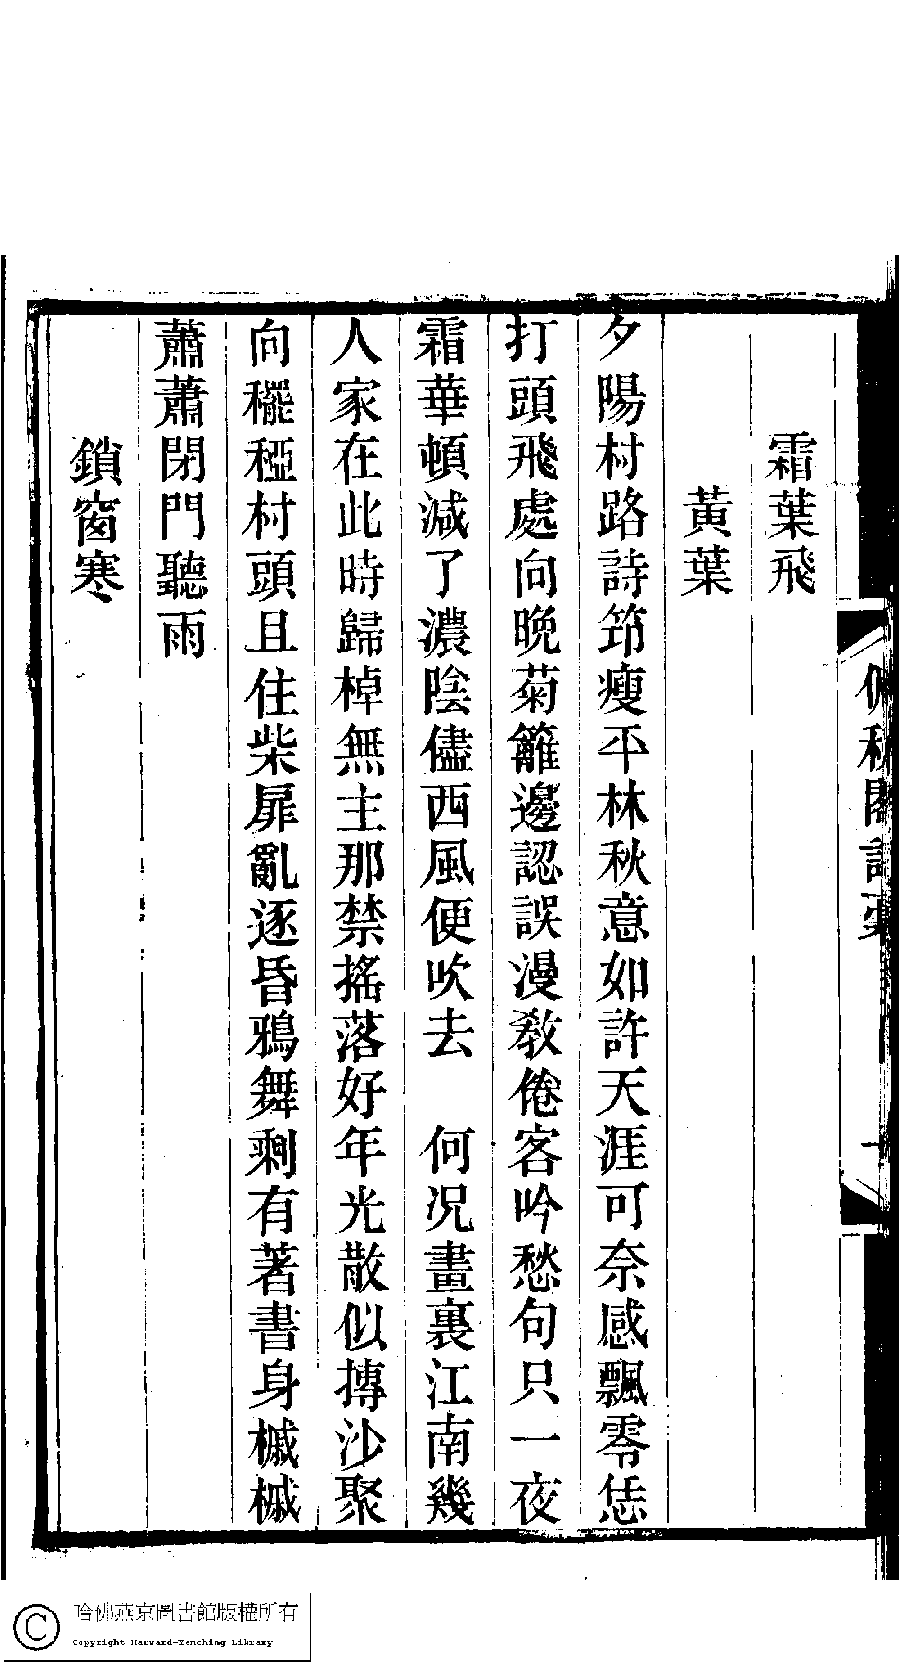 霜葉飛
黃葉
夕陽村路詩筇瘦平林秋意如許天涯可奈感飄零恁
打頭飛處向晚菊籬邊認誤漫敎倦客吟愁句只一夜
霜華頓減了濃陰儘西風便吹去　何况畫裏江南幾
人家在此時歸棹無主那禁搖落好年光散似摶沙聚
向䆉稏村頭且住柴扉亂逐昏鴉舞剩有著書身槭槭
蕭蕭閉門聽雨
鎖窗寒
秋閣
哈佛燕京圖書館版權所有
Copyright Harvard-Yenching Library